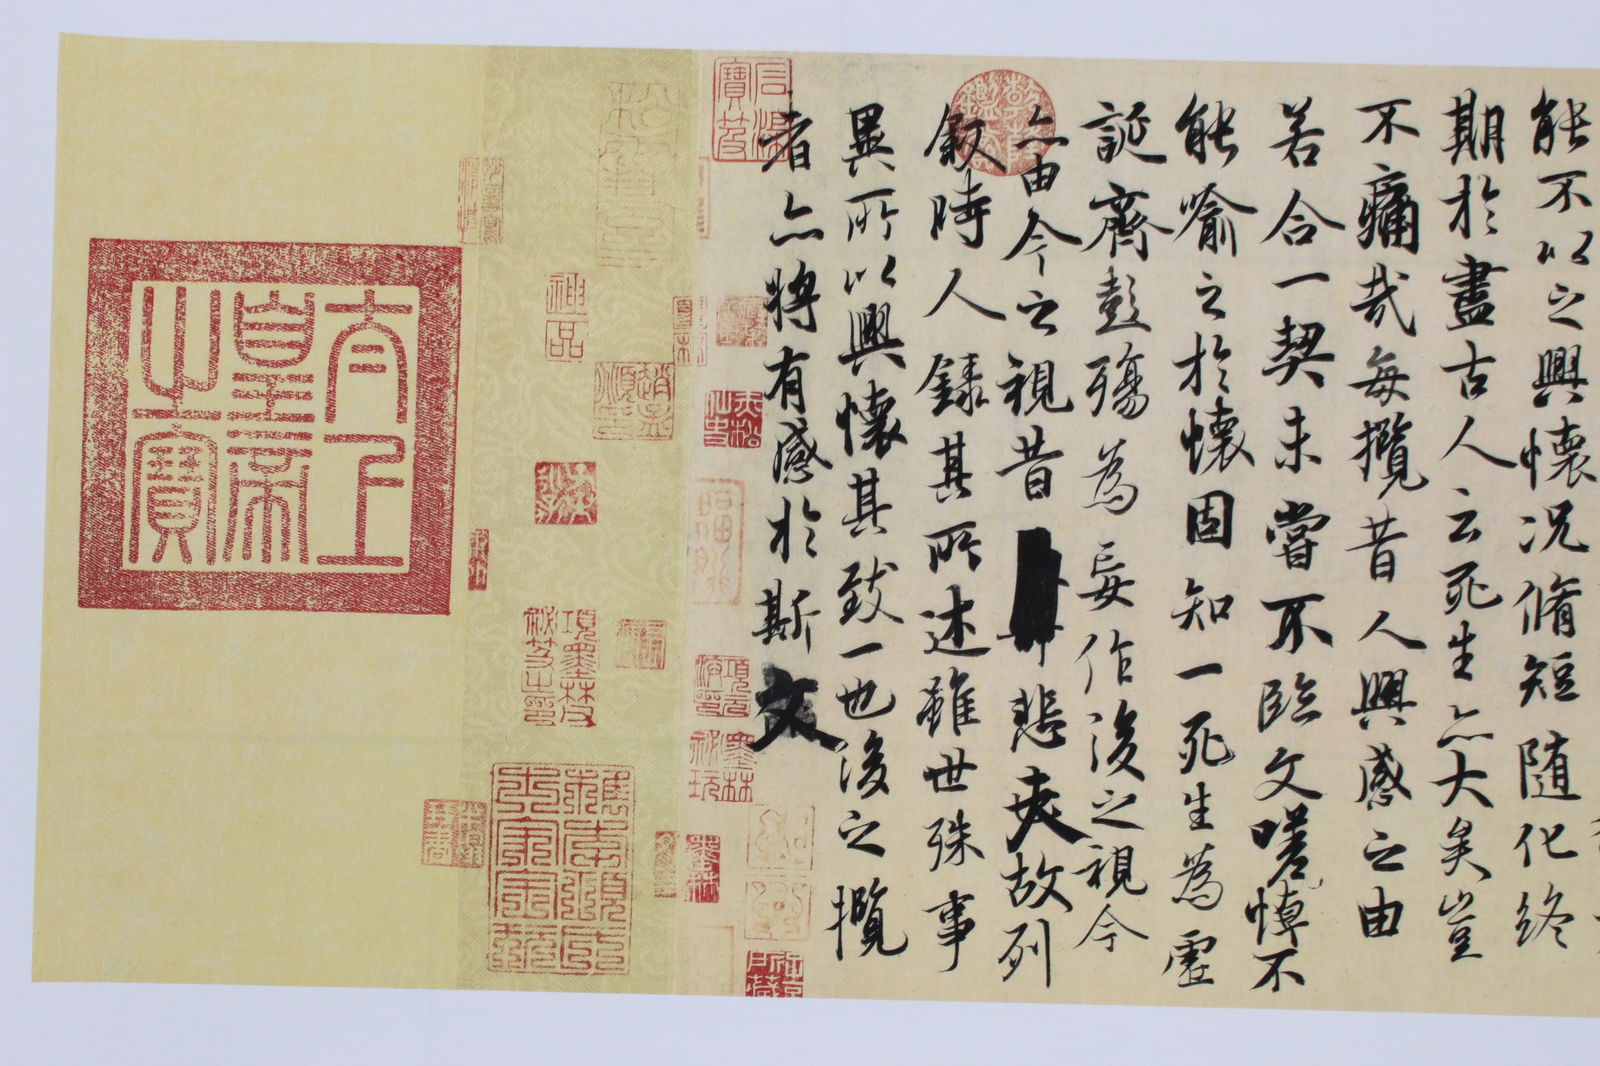 能不以之興懷況脩短随化終
期於盡古人云死生亦大矣豈
不痛哉每攬昔人興感之由
若合一契未嘗不臨文嗟悼不
能喻之於懷固知一死生為虛
誕齊彭殤為妄作後之視今
亦由今之視昔悲夫故列
敘時人錄其所述雖世殊事
異所以興懷其致一也後之攬
者亦將有感於斯文
太上
皇帝
之寶
神品
項墨林父
秘笈之印
墨林
祕玩